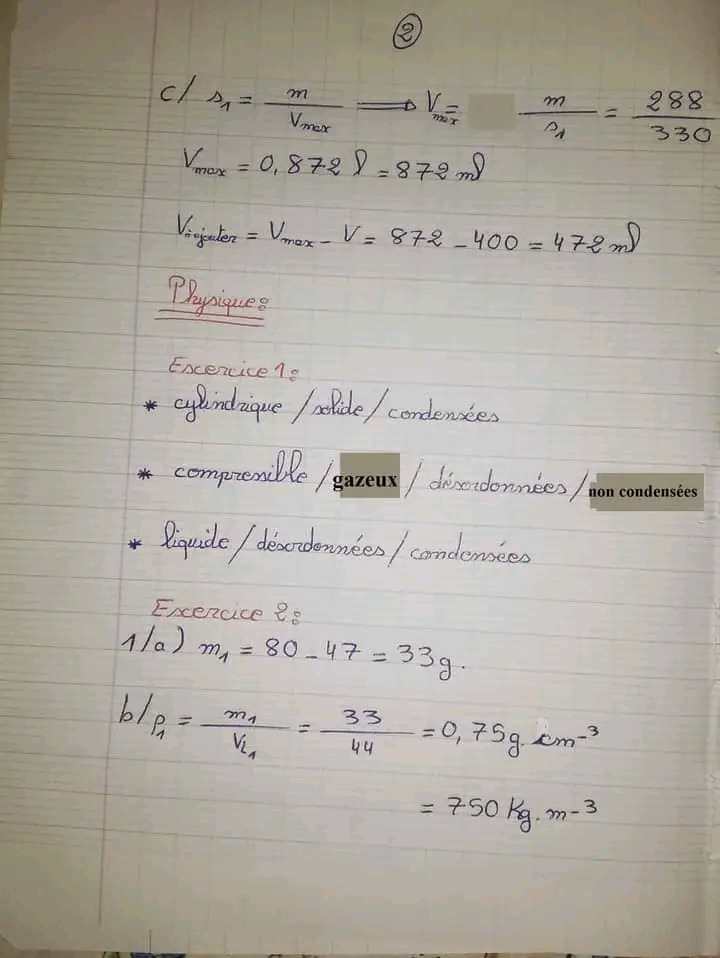 2
c/ s₁ = m / Vmax ⟹ Vmax = m / s₁ = 288 / 330
Vmax = 0,872 l = 872 ml
Và ajouter = Vmax - V = 872 - 400 = 472 ml
Physique:
Excercice 1:
* cylindrique / solide / condensées
* compresible / gazeux / désordonnées / non condensées
* liquide / désordonnées / condensées
Excercice 2:
1/a) m₁ = 80 - 47 = 33g.
b/ ρ₁ = m₁ / VL₁ = 33 / 44 = 0,75g.cm-³
= 750 Kg.m-³